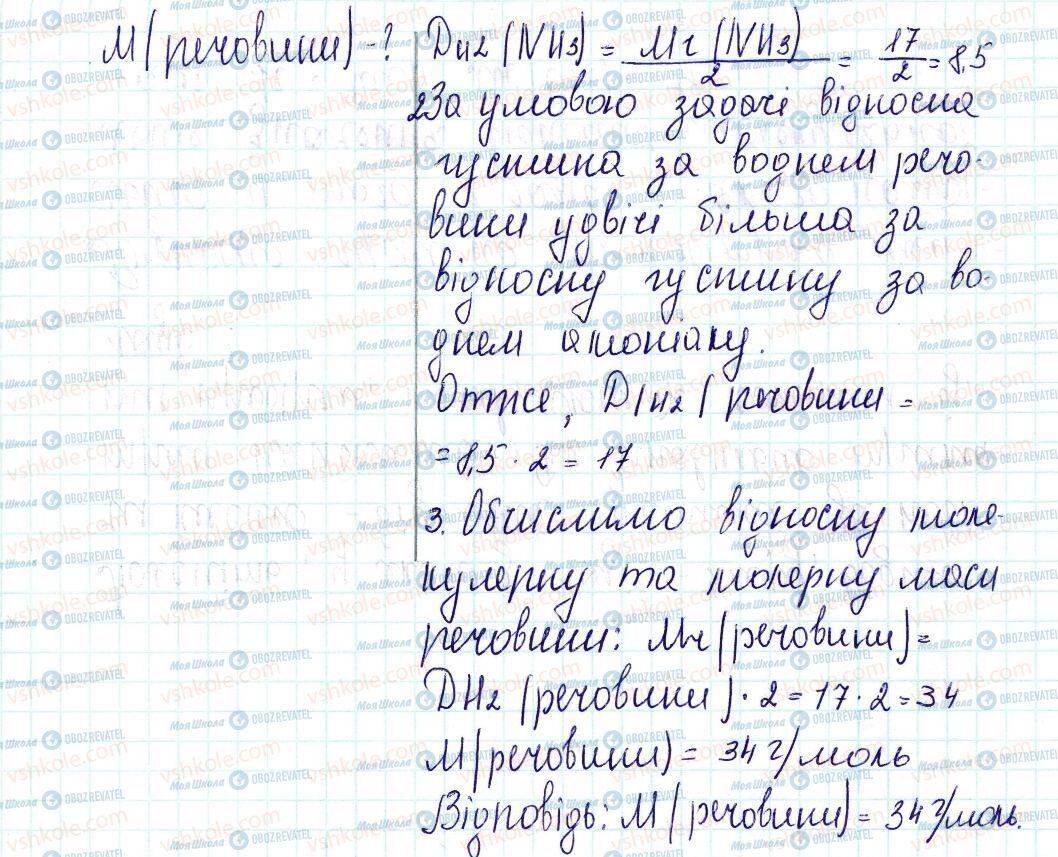 M(речовини)-? DH2(NH3) = Mr(NH3)/2 = 17/2 = 8,5
2 За умовою задачі відносна
густина за воднем речо-
вини удвічі більша за
відносну густину за во-
днем амоніаку.
Отже, D(H2(речовини =
= 8,5 · 2 = 17
3. Обчислимо відносну моле-
кулярну та молярну маси
речовини: Mr(речовини) =
DH2(речовини) · 2 = 17 · 2 = 34
M(речовини) = 34 г/моль
Відповідь: M(речовини) = 34 г/моль.